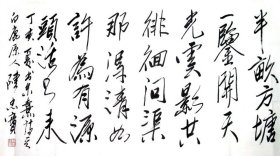 半畝方塘
一鑒開天
光雲影共
徘徊問渠
那得清如
許為有源
頭活水来
丁亥夏書朱熹詩
白鹿原人 陳忠實